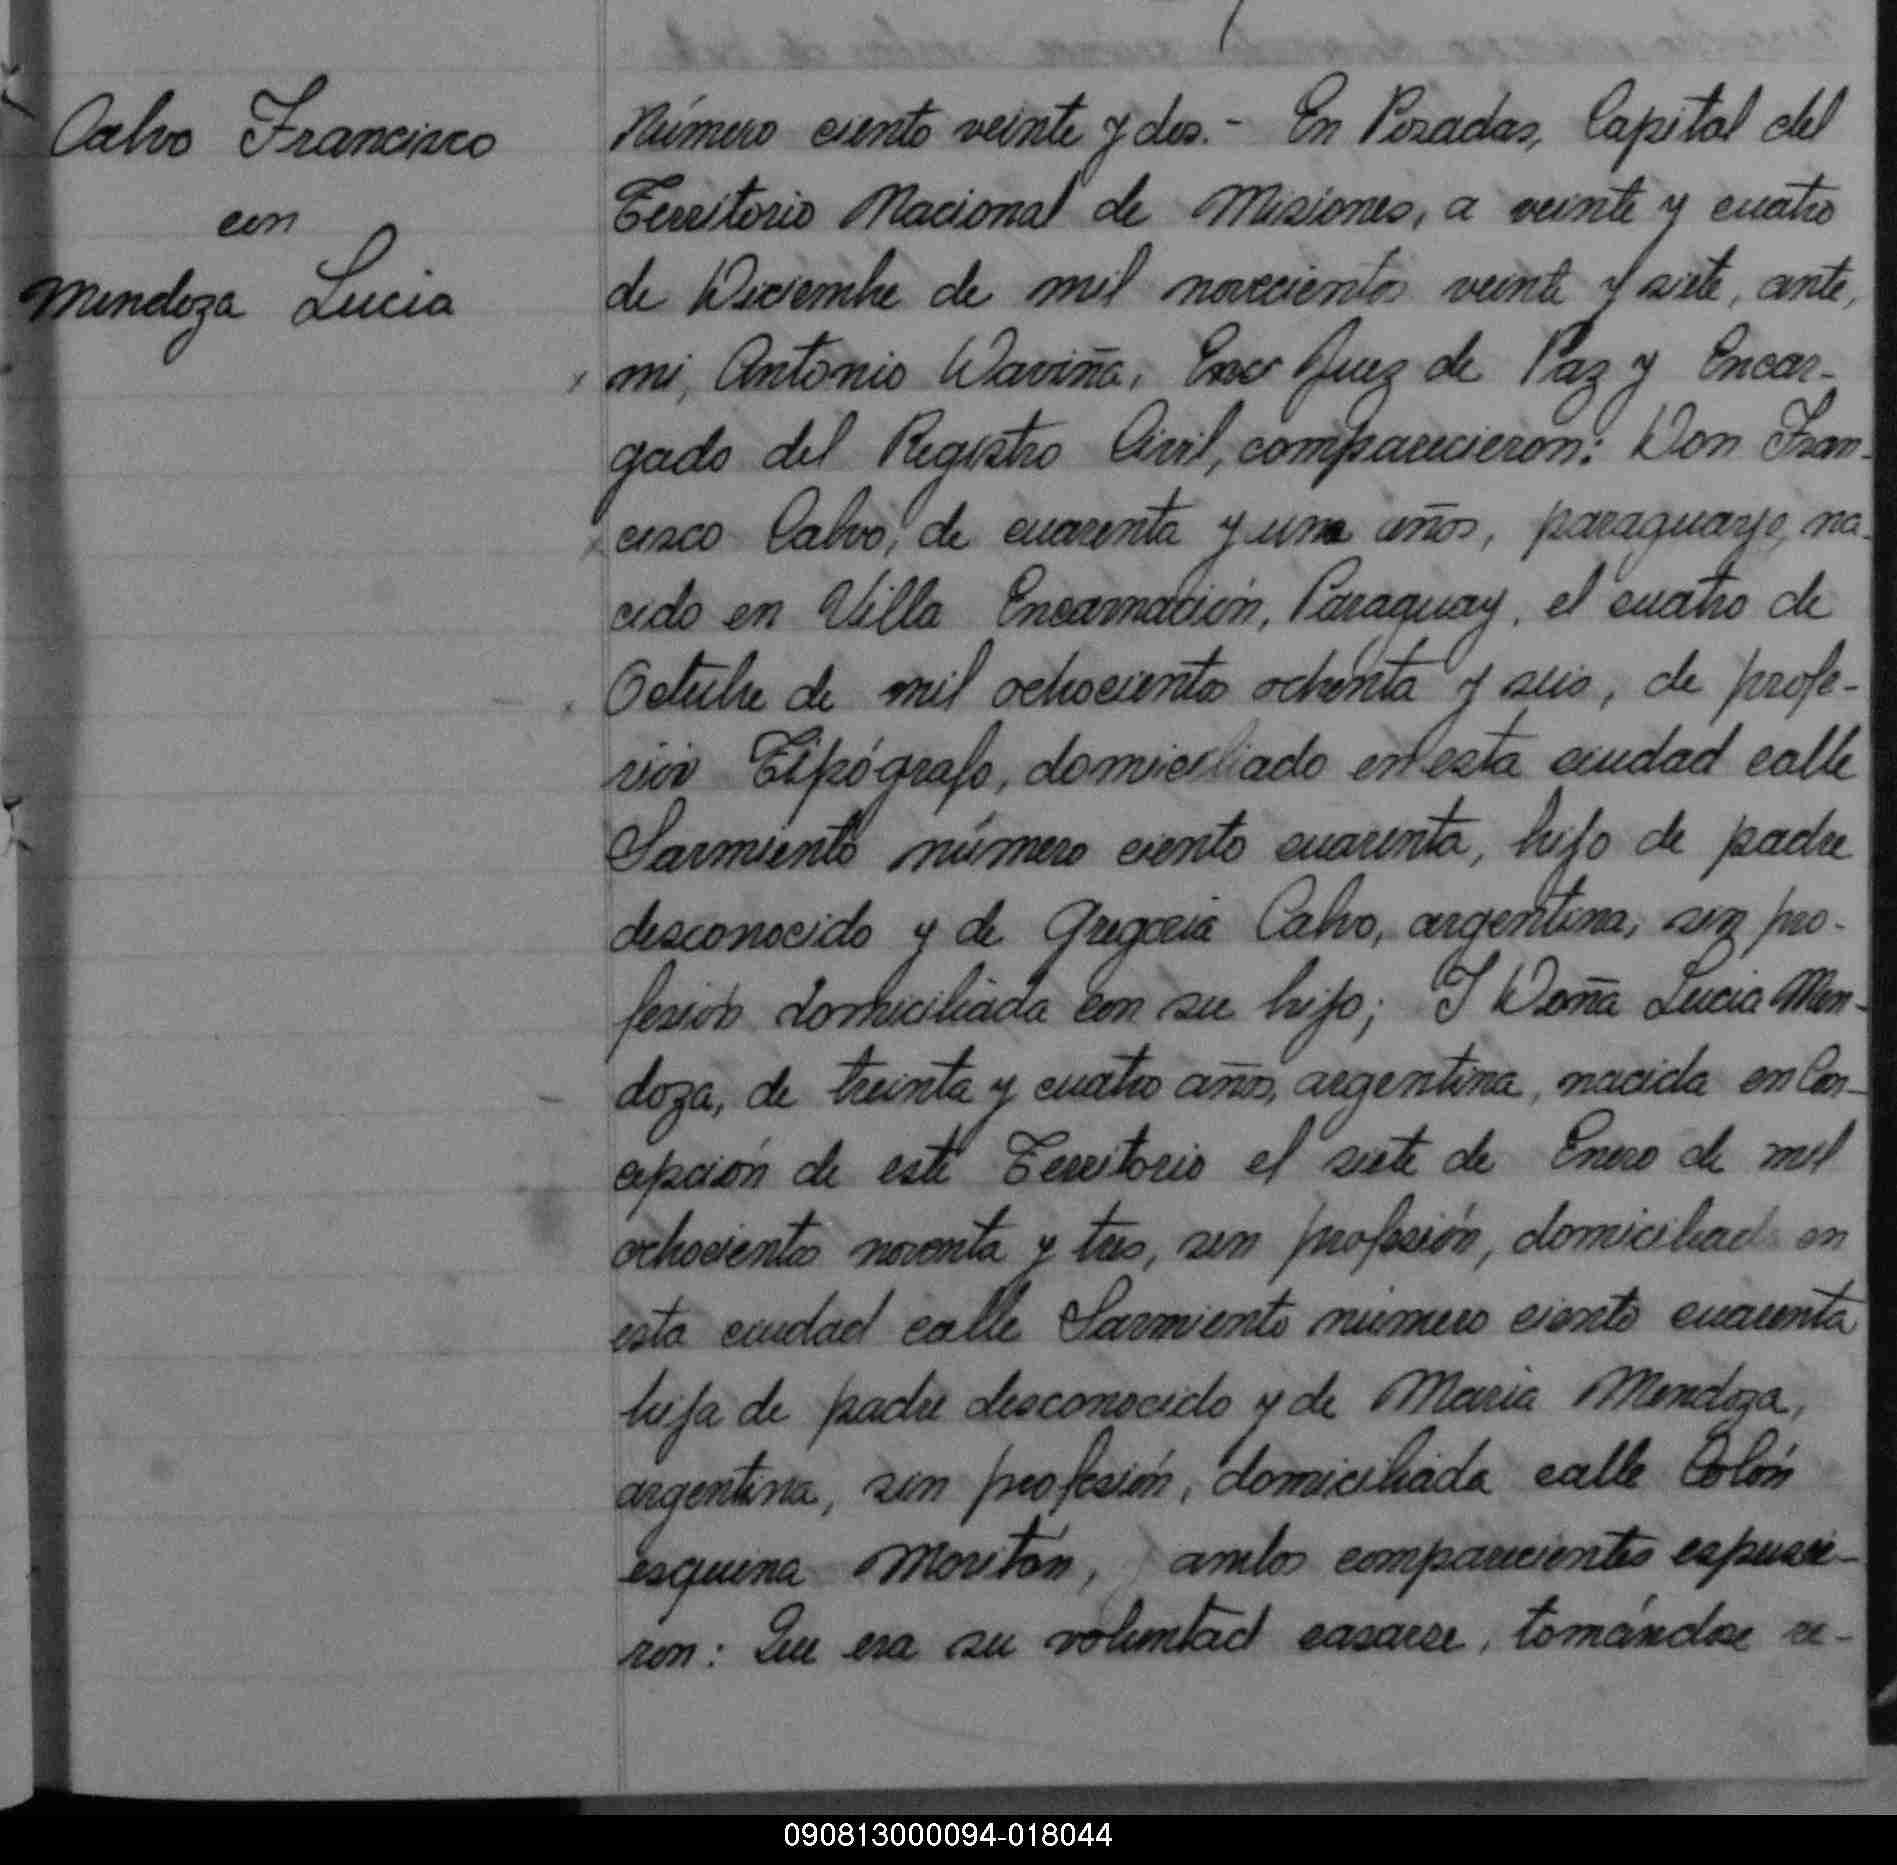 Calvo Francisco
con
Mendoza Lucia
Número ciento veinte y dos.- En Posadas, Capital del
Territorio Nacional de Misiones, a veinte y cuatro
de Diciembre de mil novecientos veinte y siete, ante,
mi, Antonio Daviña, Juez de Paz y Encar-
gado del Registro Civil, comparecieron: Don Fran-
cisco Calvo, de cuarenta y un años, paraguayo, na-
cido en Villa Encarnación, Paraguay, el cuatro de
Octubre de mil ochocientos ochenta y seis, de profe-
sión Tipógrafo, domiciliado en esta ciudad calle
Sarmiento número ciento cuarenta, hijo de padre
desconocido y de Gregoria Calvo, argentina, sin pro-
fesión domiciliada con su hijo; Y Doña Lucia Men-
doza, de treinta y cuatro años, argentina, nacida en Con-
cepción de este Territorio el siete de Enero de mil
ochocientos noventa y tres, sin profesión, domiciliada en
esta ciudad calle Sarmiento número ciento cuarenta
hija de padre desconocido y de Maria Mendoza,
argentina, sin profesión, domiciliada calle Colón
esquina Moritán, ambos comparecientes espusie-
ron: Que era su voluntad casarse, tomándose re-
090813000094-018044